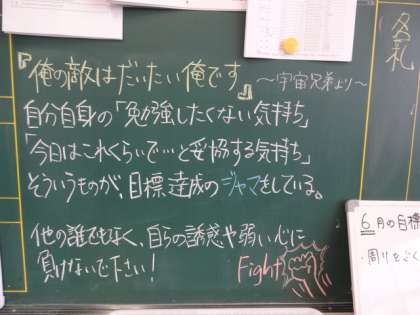 『俺の敵はだいたい俺です』 ～宇宙兄弟より～
自分自身の「勉強したくない気持ち」
「今日はこれくらいで…と妥協する気持ち」
そういうものが、目標達成のジャマをしている。
他の誰でもなく、自らの誘惑や弱い心に
負けないで下さい！
Fight
名札
6月の目標
・周りをよく